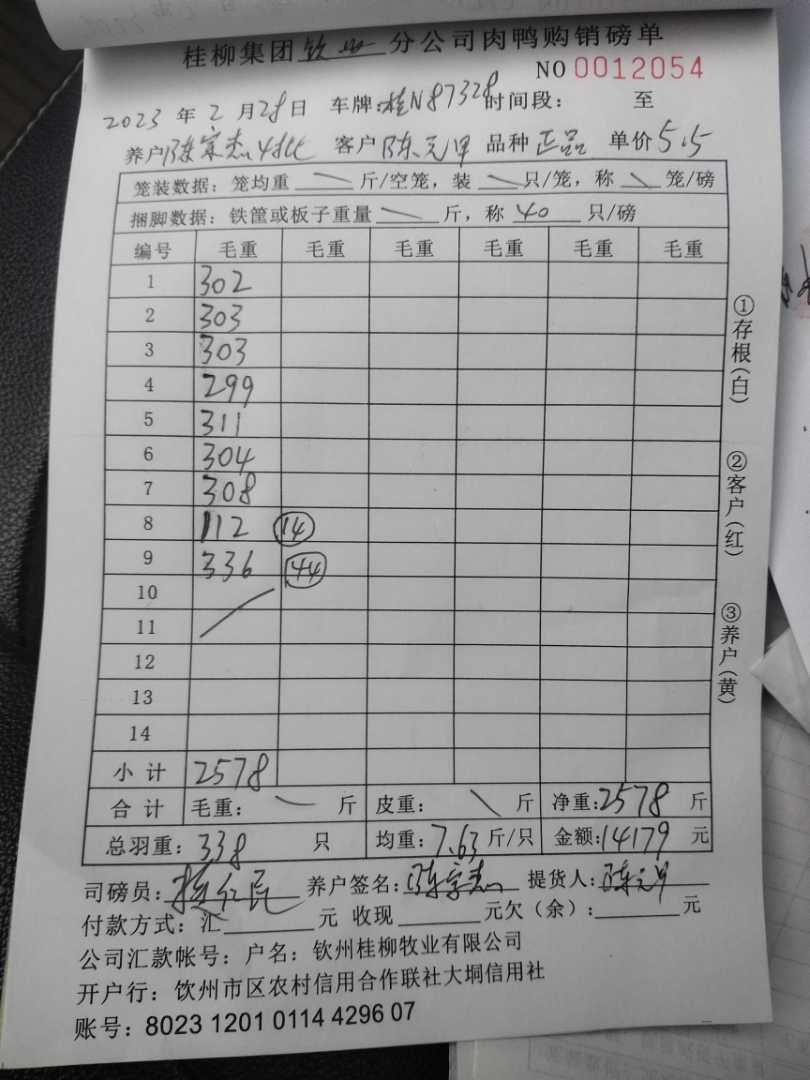 桂柳集团钦州分公司肉鸭购销磅单
NO 0012054
2023 年 2 月 28 日 车牌:桂N87328 时间段: 至
养户 陈宗杰 4批 客户 陈元甲 品种 正品 单价 5.5
笼装数据: 笼均重 斤/空笼, 装 只/笼, 称 笼/磅
捆脚数据: 铁筐或板子重量 斤, 称 40 只/磅
编号 毛重 毛重 毛重 毛重 毛重 毛重
1 302
2 303
3 303
4 299
5 311
6 304
7 308
8 112 14
9 336 44
10
11
12
13
14
小计 2578
合计 毛重: 斤 皮重: 斤 净重:2578 斤
总羽重: 338 只 均重: 7.63 斤/只 金额:14179 元
司磅员: 养户签名: 陈宗杰 提货人: 陈元甲
付款方式: 汇 元 收现 元欠(余): 元
公司汇款帐号: 户名: 钦州桂柳牧业有限公司
开户行: 饮州市区农村信用合作联社大垌信用社
账号: 8023 1201 0114 4296 07
①存根(白)
②客户(红)
③养户(黄)